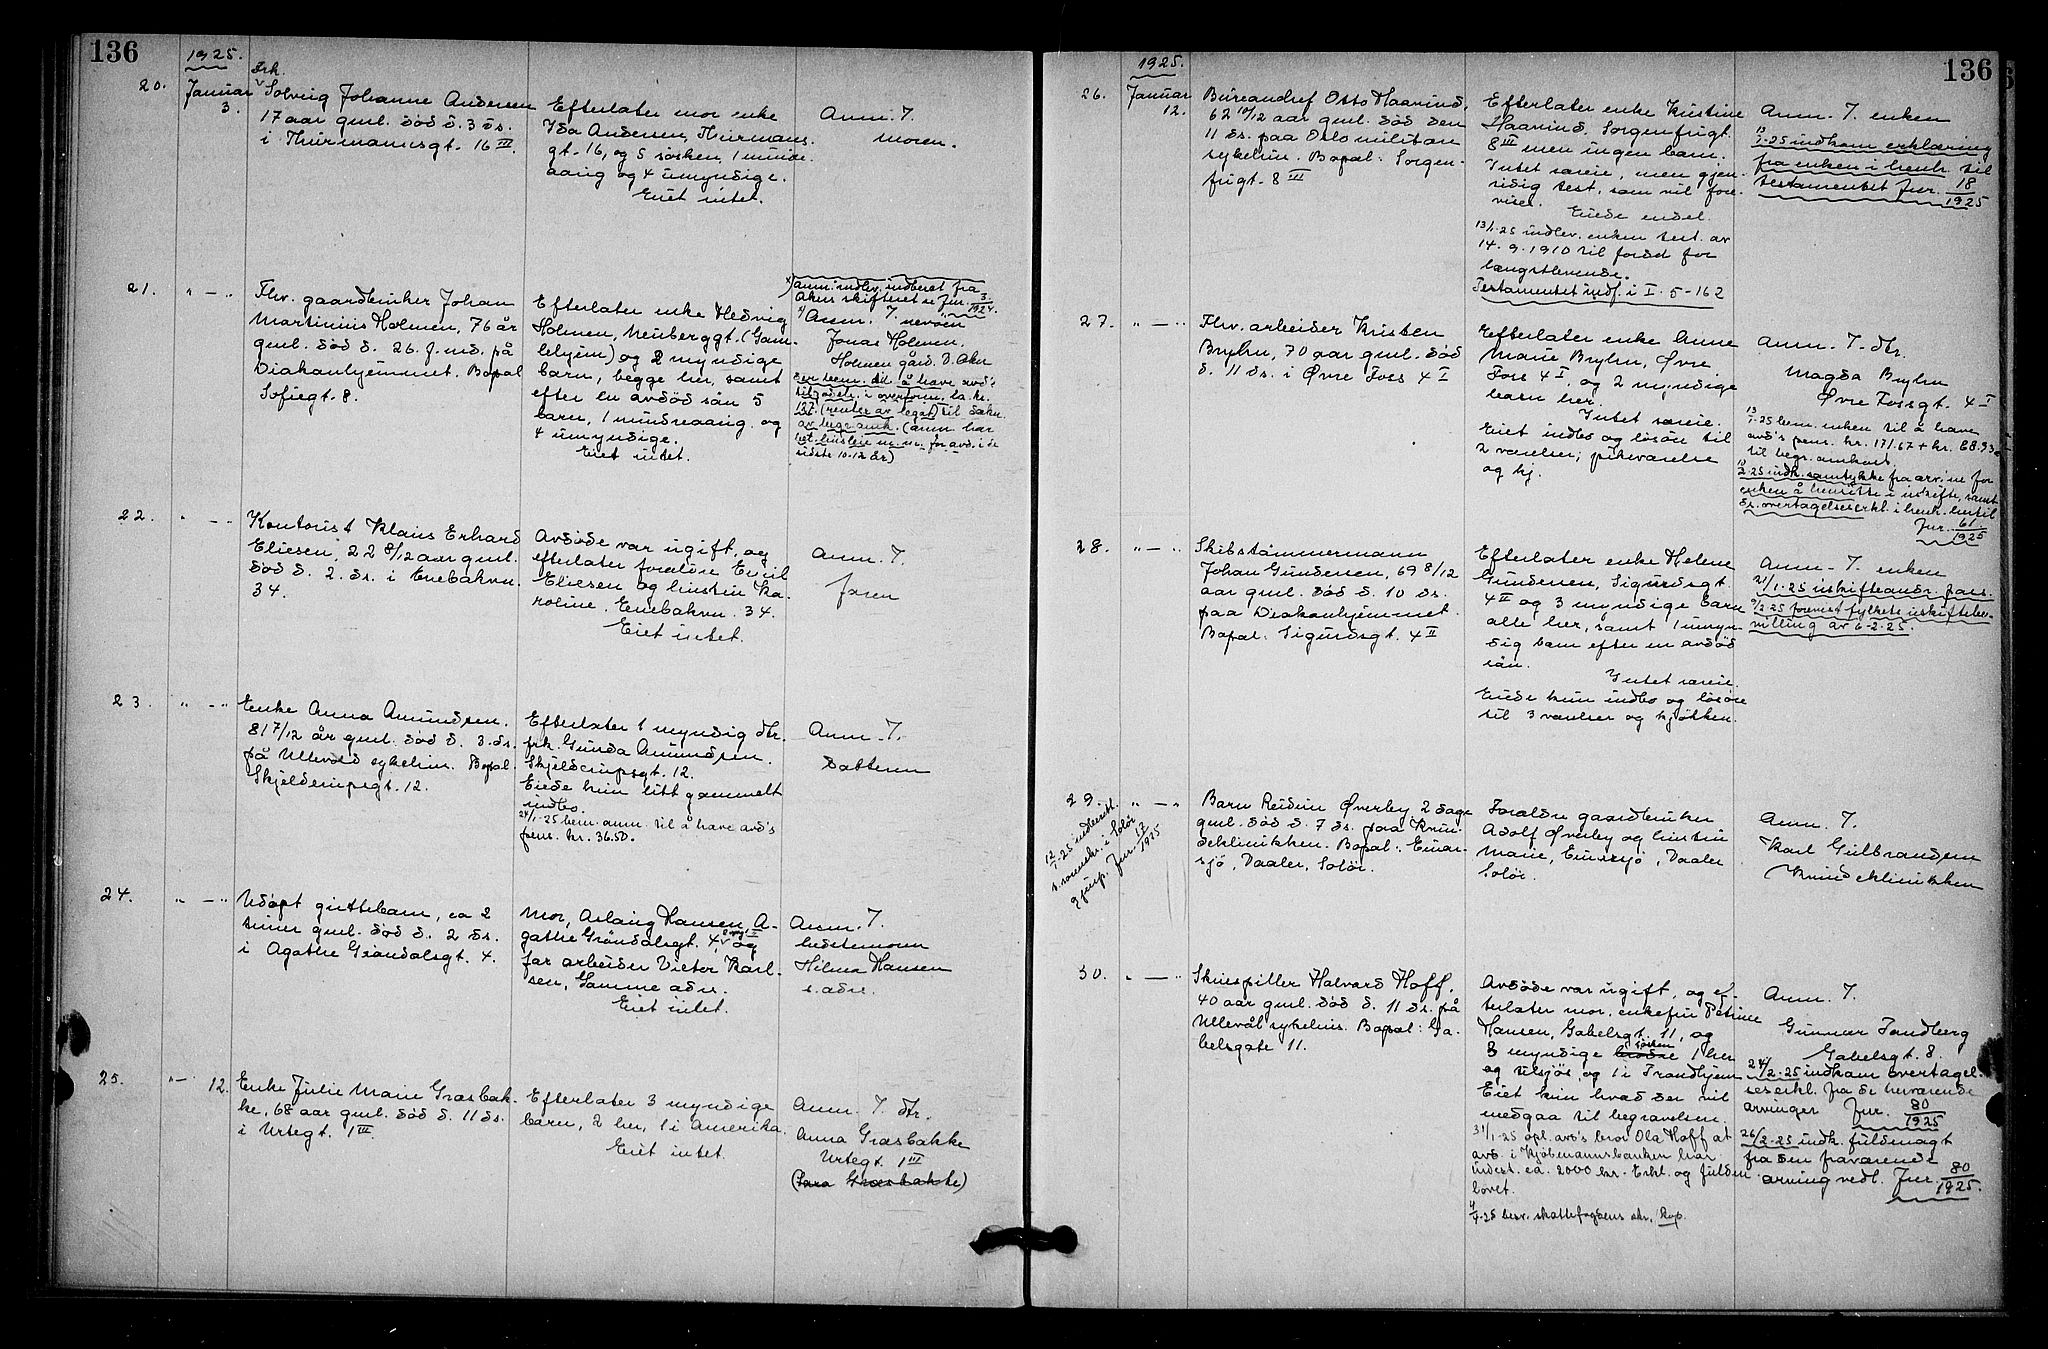 136
1925.
20.
Januar
3.
Frk.
Solveig Johanne Andersen
17 aar gml. død d. 3 ds.
i Thurmannsgt. 16 III.
Efterlater mor enke
Ida Andersen, Thurmans.
gt. 16, og 5 søsken, 1 mindre-
aarig og 4 umyndige.
Eiet intet.
Anm. I.
moren.
21.
" — "
Fhv. gaardbruker Johan
Martinius Holmen, 76 år
gml. død d. 26. f. md. på
Diakonhjemmet. Bopæl
Sofiegt. 8.
Efterlater enke Hedvig
Holmen, Neuberggt. (Gam-
lehjem) og 2 myndige
barn, begge her, samt
efter en avdød sån 5
barn, 1 mindreaarig og
4 umyndige.
Eiet intet.
x) anm. indlev. indberet fra
Akers skifteret se Jnr. 3/1924.
x) Anm. I. nevøen
Jonas Holmen,
Holmen gård. V. Aker
er bem. til å have avd's
tilgodeh. i overform. ca. kr.
127. (renter av legat) til dækn.
av begr. omk. (anm har
bet. husleie m.m. for avd. i de
sidste 10-12 år)
22.
" — "
Kontorist Klaus Erhard
Eliesen, 22 8/12 aar gml.
død d. 2. ds. i Enebakvn.
34.
Avdøde var ugift, og
efterlater forældre Emil
Eliesen og hustru Ka-
roline. Enebakvn. 34.
Eiet intet.
Anm. I.
faren
23.
" — "
Enke Anna Amundsen.
81 7/12 år gml. død d. 3. ds.
på Ullevold sykehus. Bopæl
Skjelderupsgt. 12.
Efterlater 1 myndig dtr.
frk. Gunda Amundsen.
Skjelderupsgt. 12.
Eiede kun litt gammelt
indbo.
24/1-25 bem. anm. til å have avd's
pens. kr. 36.50.
Anm. I.
Datteren
24.
" — "
Udøpt guttebarn, ca 2
timer gml. død d. 2 ds.
i Agathe Grøndalsgt. 4.
Mor, Aslaug Hansen, A-
gathe Grøndalsgt. 4, og
far arbeider Victor Karl-
sen, Samme adr.
Eiet intet.
Anm. I.
bedstemoren
Hilma Hansen
s. adr.
25.
" — 12.
Enke Julie Marie Græsbak-
ke, 68 aar gml. død d. 11 ds.
i Urtegt. 1 III.
Efterlater 3 myndige
barn, 2 her, 1 i Amerika.
Eiet intet.
Anm. I. dtr.
Anna Græsbakke
Urtegt. 1 III
(Sara Græsbakke)
136
1925.
26.
Januar
12.
Bureauchef Otto Haarind.
62 10/12 aar gml. død den
11 ds. paa Oslo militær
sykehus. Bopæl: Sorgen-
frigt. 8 III
Efterlater enke Kristine
Haarind. Sorgenfrigt.
8 III men ingen barn.
Intet særeie, men gjen-
sidig test, som vil fore-
vises.
Eiede endel.
13/1-25 indlev. enken test. av
14.9.1910 til fordel for
længstlevende.
Testamentet indf. i I. 5-162
Anm. I. enken
13/1-25 indkom erklæring
fra enken i henh. til
testamentet Jnr. 18/1925
27.
" — "
Fhv. arbeider Kristen
Bryhn, 70 aar gml. død
d. 11 ds. i Øvre Foss 4 I
Efterlater enke Anne
Marie Bryhn, Øvre
Foss 4 I, og 2 myndige
barn her.
Intet særeie.
Eiet indbo og løsøre til
2 værelser, pikeværelse
og kj.
Anm. I. dtr.
Magda Bryhn
Øvre Fossgt. 4 I
13/1-25 bem. enken til å have
avd's pens. kr. 171.67 + kr. 68.93
til begr. omkost.
10/2-25 indk. samtykke fra arv.ne for
enken å hensitte i uskifte, samt
overtagelseserkl. i henh. hertil
Jnr. 61/1925
28.
" — "
Skibstømmermann
Johan Gundersen, 69 8/12
aar gml. død d. 10 ds.
paa Diakonhjemmet.
Bopæl: Sigurdsgt. 4 II
Efterlater enke Helene
Gundersen, Sigurdsgt
4 II og 3 myndige barn
alle her, samt 1 umyn-
dig barn efter en avdød
sån.
Intet særeie.
Eiede kun indbo og løsøre
til 3 værelser og kjøkken.
Anm. I. enken
21/1-25 uskifteandr. pass.
9/2-25 forevist fylkets uskiftebe-
villing av 6-2-25.
29.
" — "
12/1-25 indberett.
s. sorenskr. i Solør
gjenp. Jnr. 17/1925
Barn Reidun Øverby 2 dage
gml. død d. 7 ds. paa Kvin-
deklinikken. Bopæl: Einar-
sjø, Vaaler, Solør.
Forældre gaardbruker
Adolf Øverby og hustru
Marie, Einarsjø, Vaaler
Solør.
Anm. I.
Karl Gulbrandsen
Kvindeklinikken
30.
" — "
Skuespiller Halvard Hoff,
40 aar gml. død d. 11 ds. på
Ullevål sykehus. Bopæl: Ga-
belsgate 11.
Avdøde var ugift, og ef-
terlater mor, enkefru Petrine
Hansen, Gabelsgt. 11, og
3 myndige brødre søsken 1 her
og utsjøs, og 1 i Trondhjem
Eiet kun hvad der vil
medgaa til begravelsen.
31/1-25 opl. avd's bror Ola Hoff at
avd. i Kjøbmannsbanken har
indest. ca. 2000 kr. Erkl. og fuldm.
lovet.
4/4-25 besv. skattefogdens skr. Kop.
Anm. I.
Gunnar Tandberg
Gabelsgt. 8.
24/2-25 indkom overtagel-
seserkl. fra de herværende
arvinger Jnr. 80/1925
26/2-25 indk. fuldmagt
fra den fraværende
arving vedl. Jnr. 80/1925.